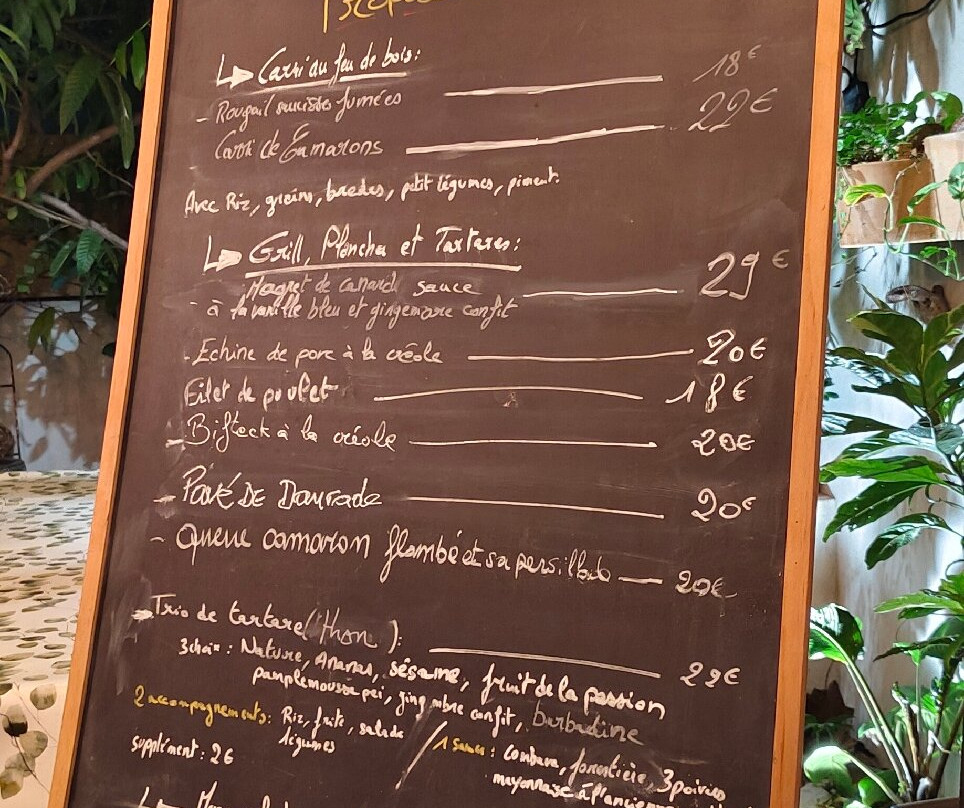 ↳ Carri au feu de bois:
- Rougail saucisse fumées 18€
Carri de Camarons 22€
Avec Riz, grains, bredes, petit légumes, piment.
↳ Grill, Plancha et Tartares:
Magret de canard sauce 29€
- à la vanille bleu et gingembre confit
- Echine de porc à la créole 20€
Filet de poulet 18€
- Bifteck à la créole 20€
- Pavé DE Daurade 20€
- Queue camaron flambé et sa persillade 29€
Trio de tartare (thon): 22€
3 choix: Nature, Ananas, sésame, fruit de la passion
pamplemousse pei, gingembre confit, barbadine
2 accompagnements: Riz, frite, salade
légumes
supplément: 2€
/ 1 sauce: Combava, forestière, 3 poivres
mayonnaise à l'ancienne